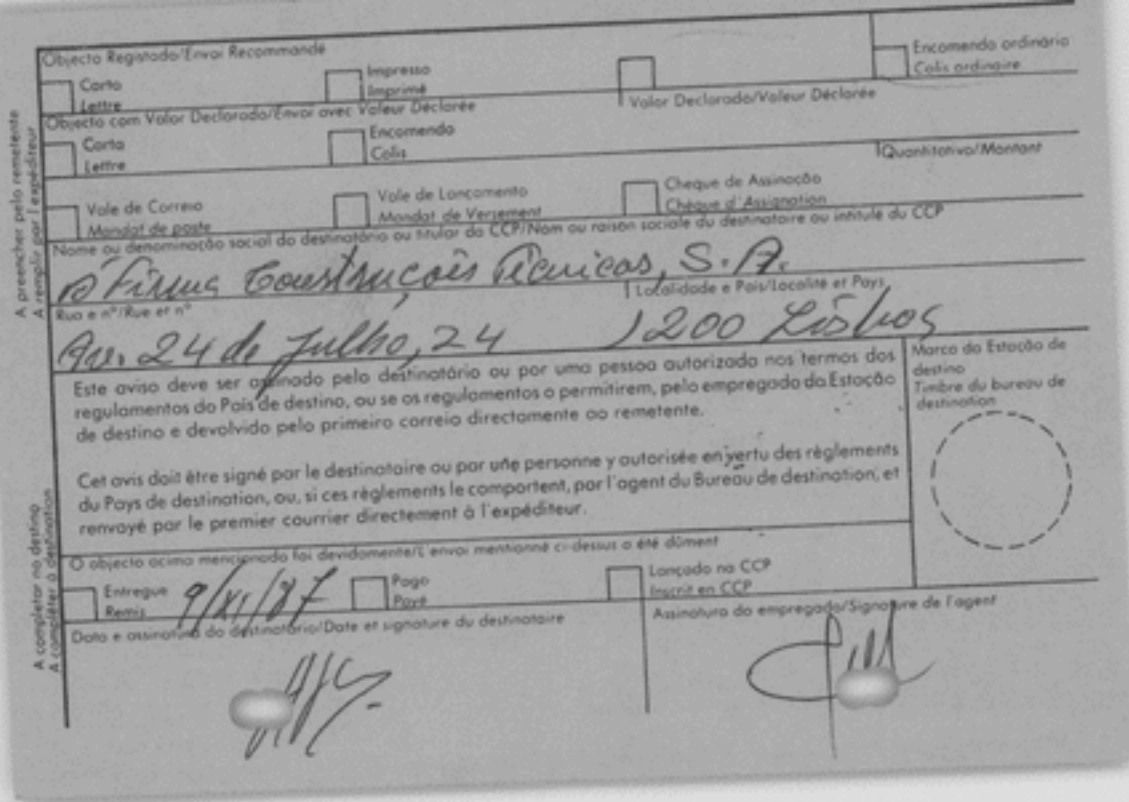 Objecto Registado/Envoi Recommandé
Carta
Lettre
Impresso
Imprimé
Encomenda ordinária
Colis ordinaire
Objecto com Valor Declarado/Envoi avec Valeur Déclarée
Valor Declarado/Valeur Déclarée
Carta
Lettre
Encomenda
Colis
Quantitativo/Montant
Vale de Correio
Mandat de poste
Vale de Lançamento
Mandat de Versement
Cheque de Assinação
Chèque d'Assignation
Nome ou denominação social do destinatário ou titular da CCP/Nom ou raison sociale du destinataire ou intitulé du CCP
À Firma Construções Técnicas, S.A.
Rua e nº/Rue et nº
Localidade e País/Localité et Pays
Av. 24 de Julho, 24
1200 Lisboa
Este aviso deve ser assinado pelo destinatário ou por uma pessoa autorizada nos termos dos
regulamentos do País de destino, ou se os regulamentos o permitirem, pelo empregado da Estação
de destino e devolvido pelo primeiro correio directamente ao remetente.
Cet avis doit être signé par le destinataire ou par une personne y autorisée en vertu des règlements
du Pays de destination, ou, si ces règlements le comportent, par l'agent du Bureau de destination, et
renvoyé par le premier courrier directement à l'expéditeur.
Marca da Estação de
destino
Timbre du bureau de
destination
O objecto acima mencionado foi devidamente/L'envoi mentionné ci-dessus a été dûment
Entregue
Remis
9/XI/87
Pago
Payé
Lançado na CCP
Inscrit en CCP
Data e assinatura do destinatário/Date et signature du destinataire
Assinatura do empregado/Signature de l'agent
A preencher pelo remetente
A remplir par l'expéditeur
A completar no destino
A compléter à destination